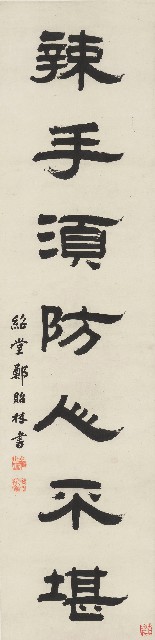 辣手須防人不堪
紹堂鄭貽林書